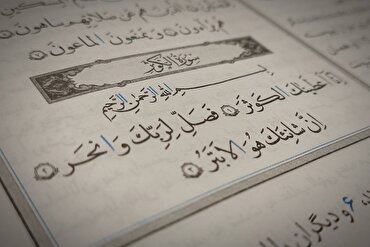 عَن صَلَاتِهِمْ سَاهُونَ
هُمْ يُرَاءُونَ وَيَمْنَعُونَ الْمَاعُونَ
سُورَةُ الْكَوْثَرِ
بِسْمِ اللهِ الرَّحْمٰنِ الرَّحِيمِ
إِنَّا أَعْطَيْنَاكَ الْكَوْثَرَ ١ فَصَلِّ لِرَبِّكَ وَانْحَرْ ٢
إِنَّ شَانِئَكَ هُوَ الْأَبْتَرُ ٣
۶ و دیگران